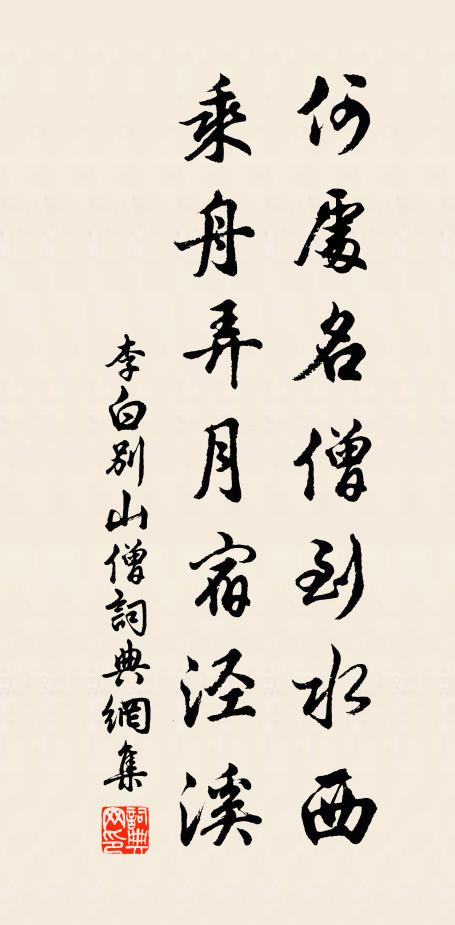 何處名僧到水西
乘舟弄月宿涇溪
李白別山僧詞典網集
詞典
网印